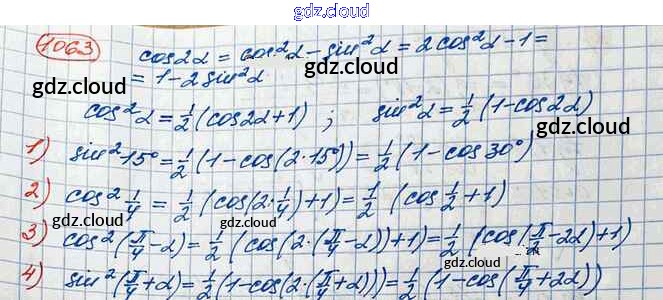 gdz.cloud
1063 cos2α = cos²α - sin²α = 2cos²α - 1 =
= 1 - 2sin²α
gdz.cloud
gdz.cloud
cos²α = 1/2 (cos2α + 1) ; sin²α = 1/2 (1 - cos2α)
gdz.cloud
1) sin²15° = 1/2 (1 - cos(2·15°)) = 1/2 (1 - cos30°)
gdz.cloud
2) cos² 1/4 = 1/2 (cos(2·1/4) + 1) = 1/2 (cos 1/2 + 1)
gdz.cloud
gdz.cloud
3) cos²(π/4 - α) = 1/2 (cos(2·(π/4 - α)) + 1) = 1/2 (cos(π/2 - 2α) + 1)
gdz.cloud
gdz.cloud
4) sin²(π/4 + α) = 1/2 (1 - cos(2·(π/4 + α))) = 1/2 (1 - cos(π/4 + 2α))
gdz.cloud